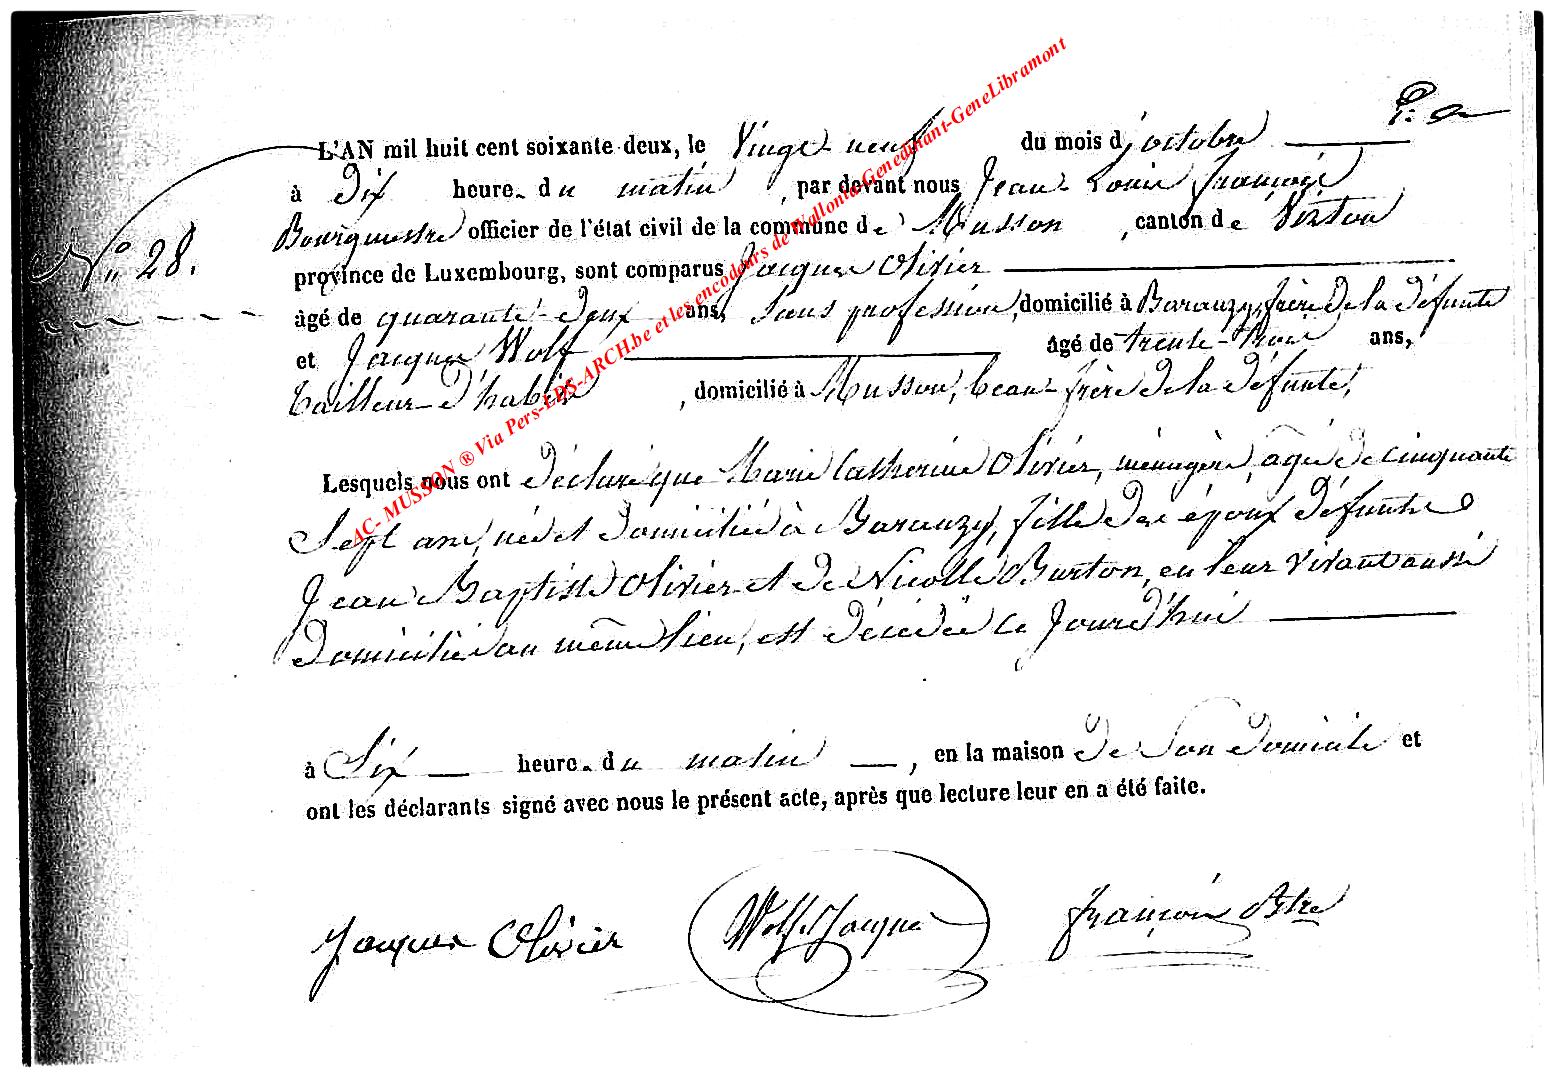 P. a
L'AN mil huit cent soixante deux, le Vingt-neuf du mois d'octobre
à dix heure. du matin, par devant nous Jean-Louis François
Bourgmestre officier de l'état civil de la commune de Musson, canton de Virton
N° 28.
province de Luxembourg, sont comparus Jacques Olivier
âgé de quarante-deux ans, sans profession, domicilié à Baranzy, frère de la défunte
et Jacques Wolf âgé de trente-trois ans,
tailleur d'habits, domicilié à Musson, beau-frère de la défunte,
Lesquels nous ont déclaré que Marie Catherine Olivier, ménagère, âgée de cinquante
sept ans, née et domiciliée à Baranzy, fille des époux défunts
Jean Baptiste Olivier et de Nicolle Burton, en leur vivant aussi
domiciliés au même lieu, est décédée ce jourd'hui
à Six heure. du matin, en la maison de son domicile et
ont les déclarants signé avec nous le présent acte, après que lecture leur en a été faite.
Jacques Olivier Wolf Jacques François Bstre
AC- MUSSON ® Via Pers-EPS-ARCH.be et les encodeurs de Wallonia-Genedinant-GeneLibramont